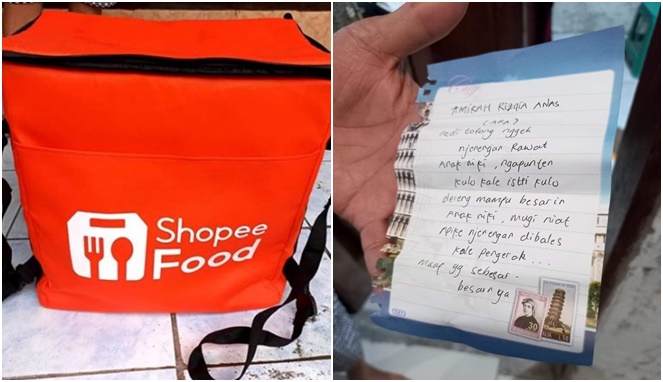 Shopee
Food
AMIRAH RIZQIA ANAS
(ARA)
nedi tolong nggeh
njenengan Rawat
Anak niki, ngapunten
kulo kale istri kulo
dereng mampu besarin
Anak niki, mugi niat
Apike njenengan dibales
kale pengeran...
maaf yg sebesar-
besarnya
30